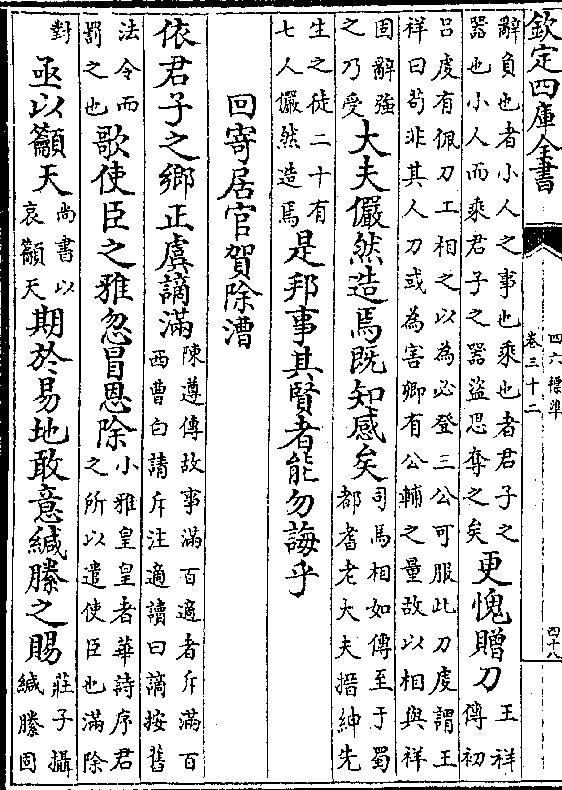 欽定四庫全書
四六標準
卷三十二
四十八
辭負也者小人之事也乘也者君子之
器也小人而乘君子之器盜思奪之矣
更愧贈刀
王祥
傳初
呂虔有佩刀工相之以為必登三公可服此刀虔謂王
祥曰苟非其人刀或為害卿有公輔之量故以相與祥
固辭強
之乃受
大夫儼然造焉既知感矣
司馬相如傳至于蜀
都耆老大夫搢紳先
生之徒二十有
七人儼然造焉
是邦事其賢者能勿誨乎
回寄居官賀除漕
依君子之鄉正虞謫滿
陳遵傳故事滿百適者斥滿百
西曹白請斥注適讀曰謫按舊
法令而
罰之也
歌使臣之雅忽冒恩除
小雅皇皇者華詩序君
之所以遣使臣也滿除
對
亟以籲天
尚書以
哀籲天
期於易地敢意緘縢之賜
莊子攝
緘縢固